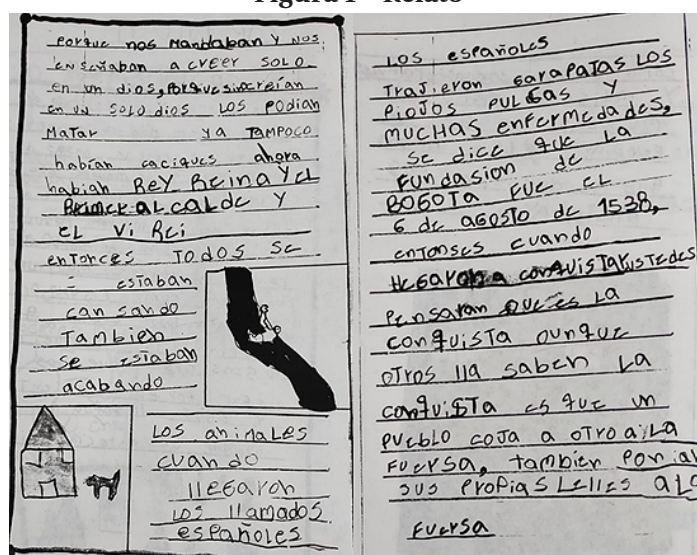 Figura 1 - Relato
Porque nos Mandaban Y NOS,
enseñaban a creer SOLO
en un dios, Porque sinocreían
en un SOLO dios LOS PODian
MaTar ya TAMPOCO
habían caciques ahora
habian REY Reina Y EL
Primer aLcaLde Y
EL Vi Rei
enTonces TODOS SE
estaban
can sando
Tambien
Se estaban
acabando
LOS animaLes
cuando
llegaron
LOS llamados
españoles
LOS españoles
Trajeron garaPaTas LOS
PiOJOS PULGAS Y
MUCHAS enfermedades,
Se dice que La
FUNdasion de
BOGOTA FUE EL
6 de agosto de 1538,
enTonses cuando
llegaron a conquisTar usTedes
Pensaran que es La
conquisTa ounque
oTros lla saben La
conquisTa es que un
PUebLo coja a oTro a La
Fuersa, Tambien Ponian
sus ProPias Lelles a La
Fuersa